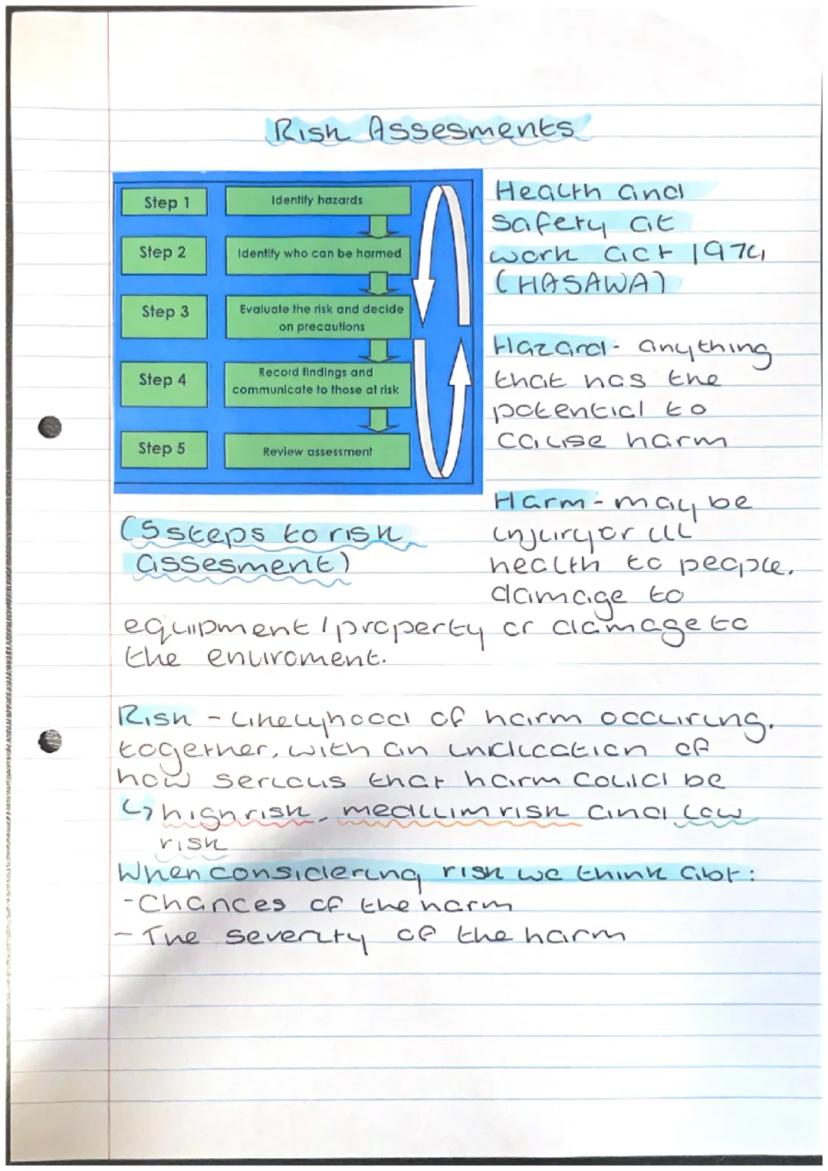 Risk Assesments
Step 1 Identify hazards
Step 2 Identify who can be harmed
Step 3 Evaluate the risk and decide
on precautions
Step 4 Record findings and
communicate to those at risk
Step 5 Review assessment
(5 steps to risk
assesment)
Health and
Safety at
work act 1974
(HASAWA)
Hazard - anything
that has the
potential to
cause harm
Harm - may be
injury or ill
health to people,
damage to
equipment / property or damage to
the enviroment.
Risk - likelyhood of harm occuring,
together, with an indication of
how serious that harm could be
↳ high risk, medium risk and low
risk
When considering risk we think abt:
- Chances of the harm
- The severity of the harm